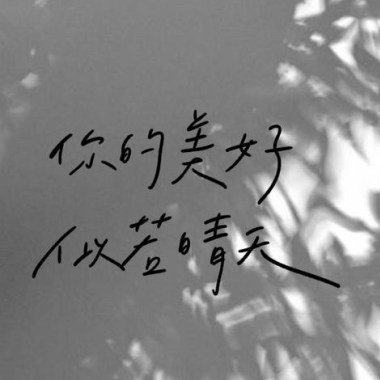 你的美好
似若晴天